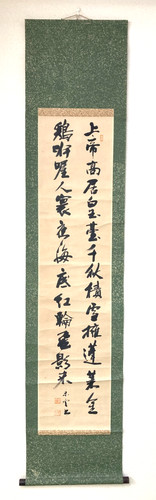 上帝高居白玉臺千秋積雪擁蓬莱金
鶏咿喔人寰夜海底紅輪飛影来